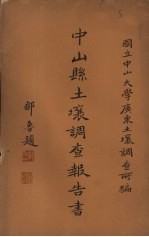 國立中山大學廣東土壤調查所編
中山縣土壤調查報告書
鄒魯題